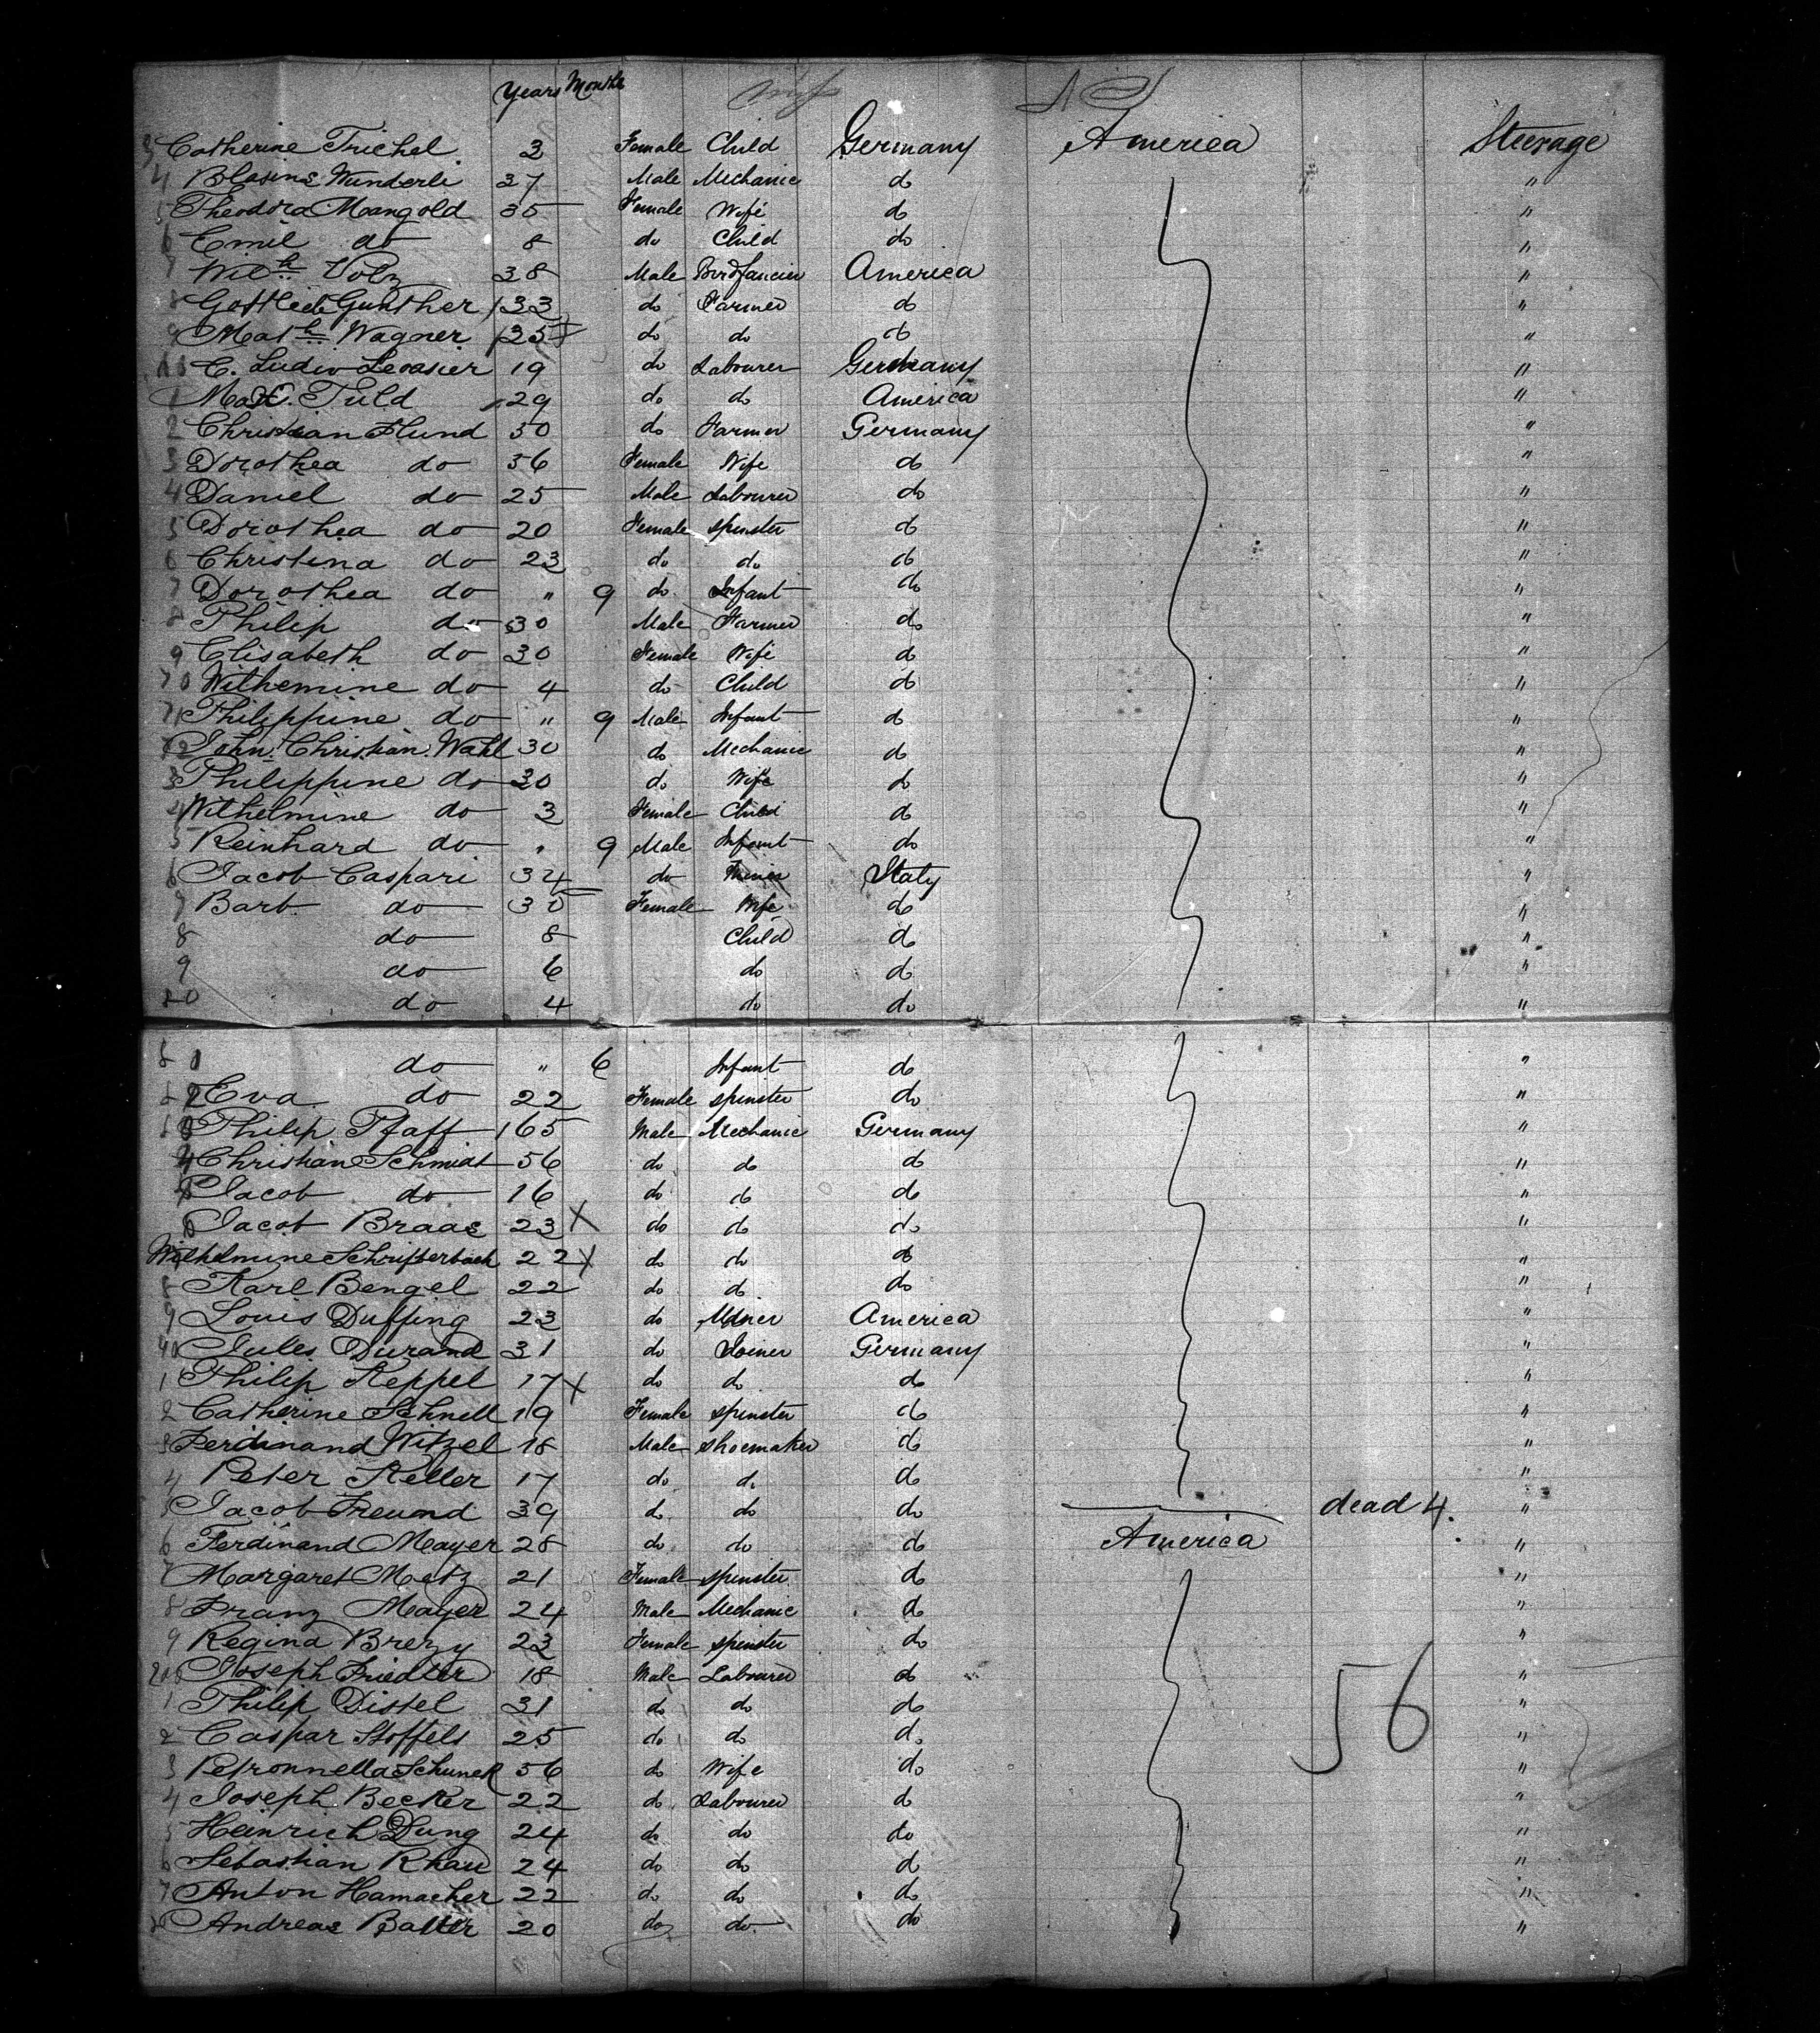 Years Months
3 Catherine Trichel 3 Female Child Germany America Steerage
4 Blasius Wunderli 37 Male Mechanic do "
5 Theodora Mangold 35 Female Wife do "
6 Emil do 8 do Child do "
7 Wilh Volz 38 Male Birdfancier America "
8 Gottlieb Gunther 33 do Farmer do "
9 Math Wagner 25 do do do "
C. Ludiv Levasier 19 do Labourer Germany "
1 Max Tuld 29 do do America "
2 Christian Hund 50 do Farmer Germany "
3 Dorothea do 56 Female Wife do "
4 Daniel do 25 Male Labourer do "
5 Dorothea do 20 Female Spinster do "
6 Christina do 23 do do do "
7 Dorothea do " 9 do Infant do "
8 Philip do 30 Male Farmer do "
9 Elisabeth do 30 Female Wife do "
70 Wilhemine do 4 do Child do "
71 Philippine do " 9 Male Infant do "
72 John Christian Wahl 30 do Mechanic do "
3 Philippine do 30 do Wife do "
4 Wilhelmine do 3 Female Child do "
5 Reinhard do " 9 Male Infant do "
6 Jacob Caspari 34 do Miner Italy "
7 Barb do 35 Female Wife do "
8 do 8 Child do "
9 do 6 do do "
80 do 4 do do "
81 do " 6 Infant do "
82 Eva do 22 Female Spinster do "
83 Philip Pfaff 65 Male Mechanic Germany "
4 Christian Schmidt 56 do do do "
5 Jacob do 16 do do do "
6 Jacob Braas 23 X do do do "
Wilhelmine Schrifterbach 22 X do do do "
8 Karl Bengel 22 do do do "
9 Louis Duffing 23 do Miner America "
90 Jules Durand 31 do Joiner Germany "
1 Philip Keppel 17 X do do do "
2 Catherine Schnell 19 Female Spinster do "
3 Ferdinand Witzel 18 Male Shoemaker do "
4 Peter Keller 17 do do do "
5 Jacob Freund 39 do do do dead 4. "
6 Ferdinand Meayer 28 do do do America "
7 Margaret Metz 21 Female Spinster do "
8 Franz Mayer 24 Male Mechanic do "
9 Regina Brezy 23 Female Spinster do "
200 Joseph Friedler 18 Male Labourer do 56 "
1 Philip Distel 31 do do do "
2 Caspar Stoffels 25 do do do "
3 Petronnella Schunek 56 do Wife do "
4 Joseph Becker 22 do Labourer do "
5 Heinrich Dung 24 do do do "
6 Sebastian Rhau 24 do do do "
7 Anton Hamacher 22 do do do "
Andreas Balter 20 do do do "